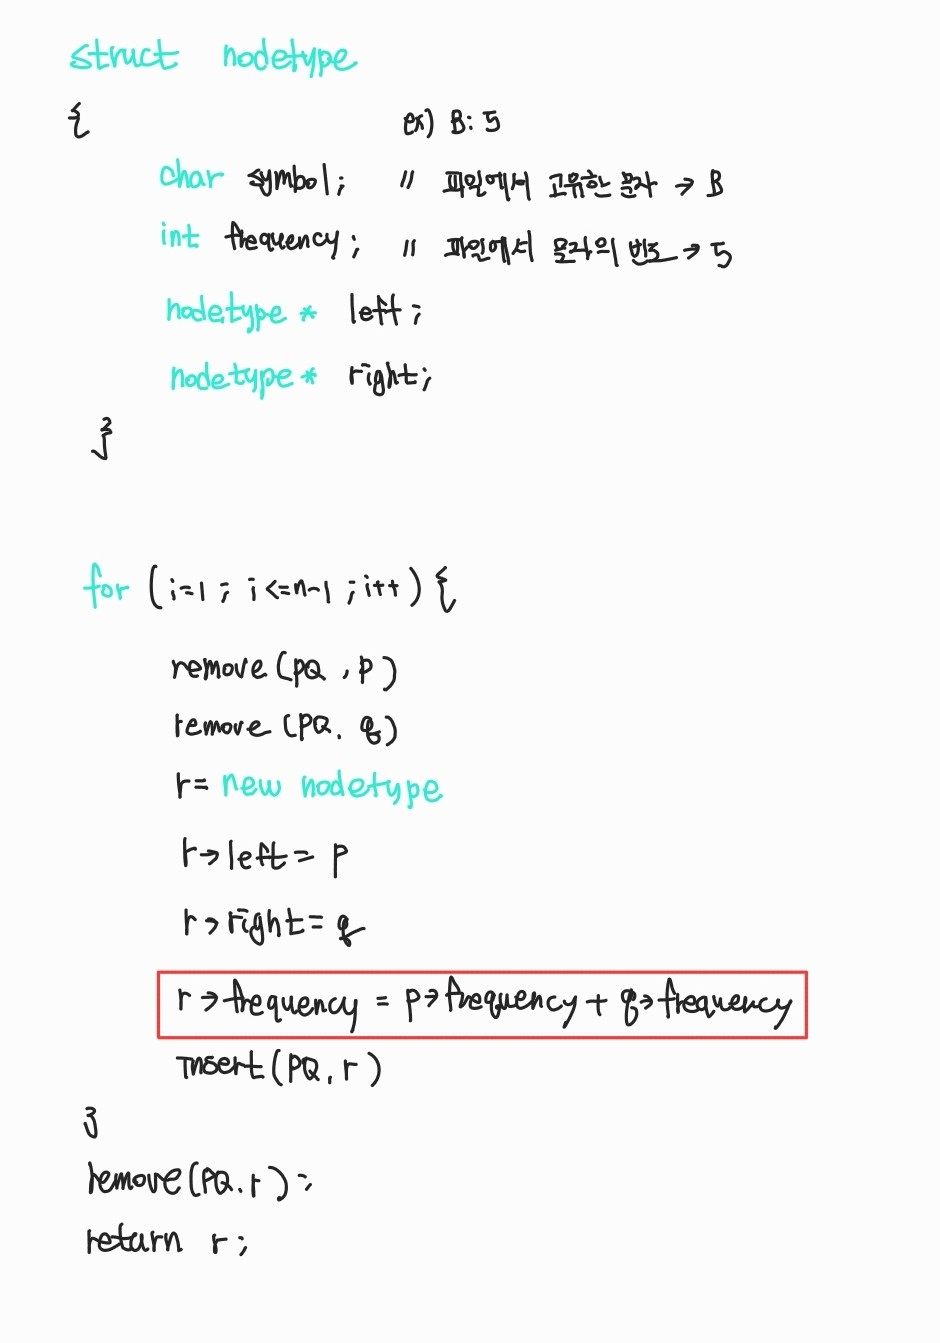 struct nodetype
{
ex) B: 5
char symbol; // 파일에서 고유한 문자 → B
int frequency; // 파일에서 문자의 빈도 → 5
nodetype * left;
nodetype * right;
}
for (i=1 ; i<=n-1 ; i++) {
remove (PQ , p)
remove (PQ. q)
r= new nodetype
r→left = p
r→right = q
r→frequency = p→frequency + q→frequency
Insert (PQ, r)
}
remove(PQ.r) ;
return r ;